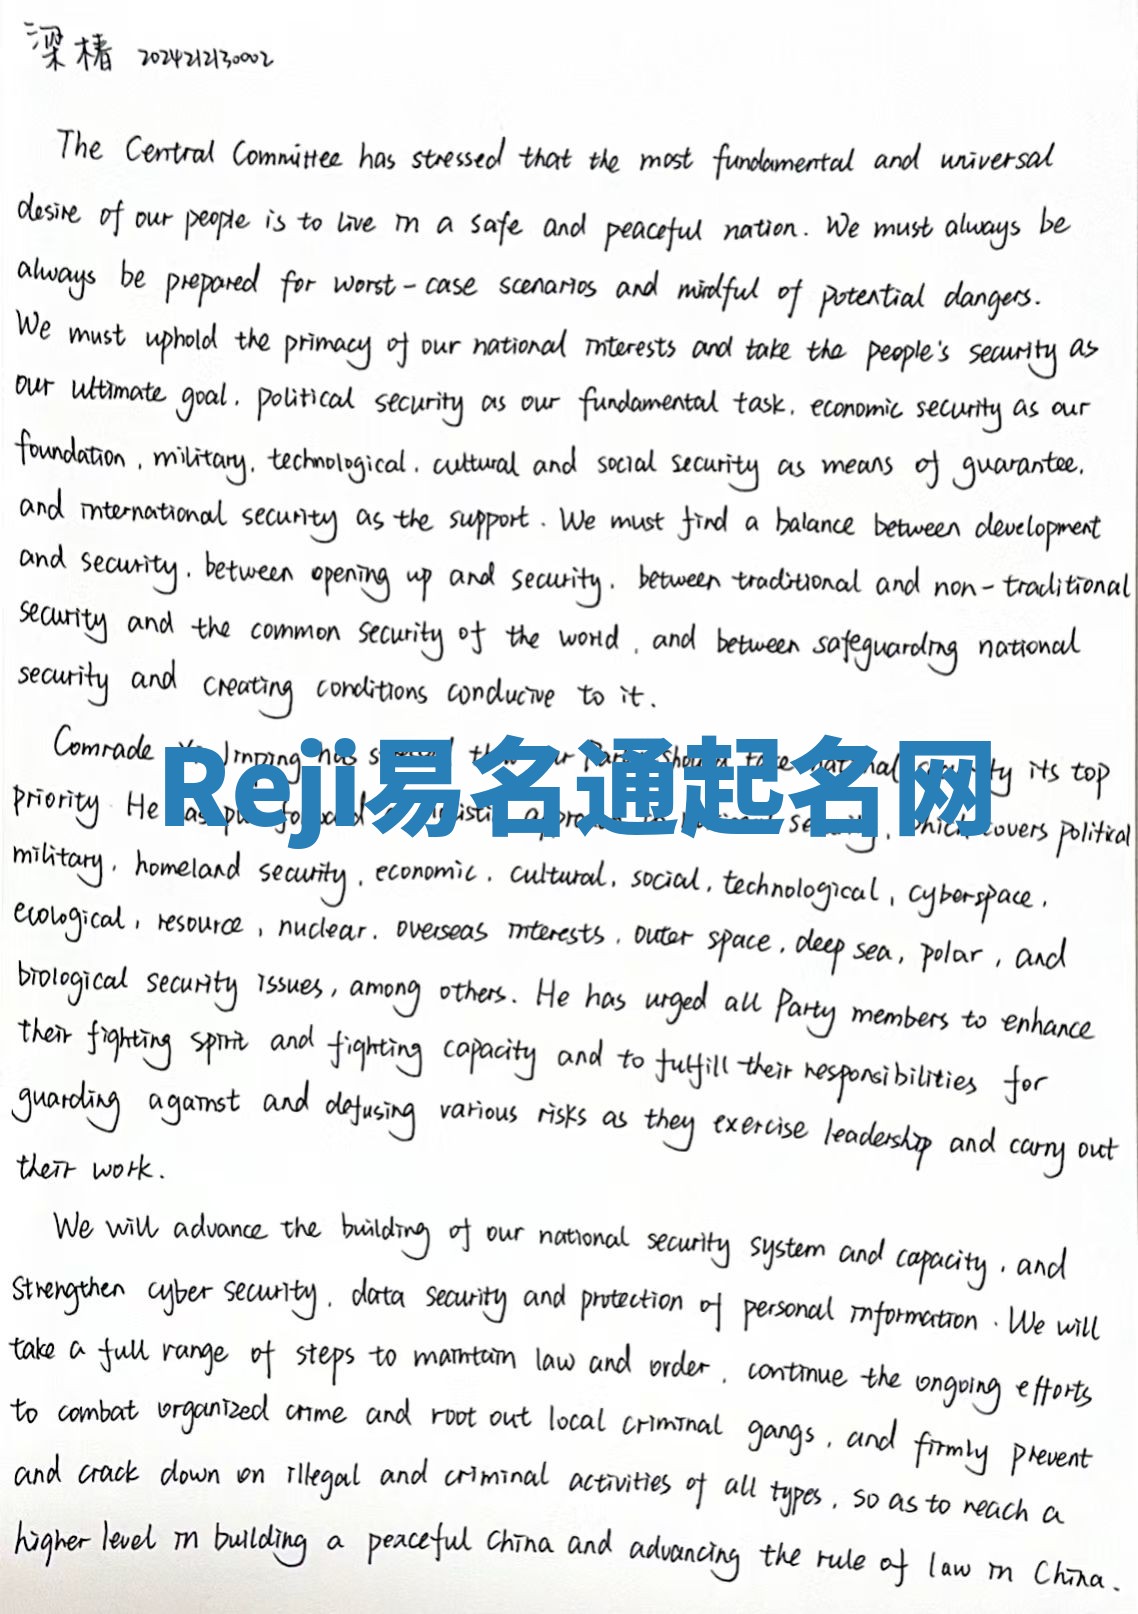 梁椿 2024212130002
The Central Committee has stressed that the most fundamental and universal
desire of our people is to live in a safe and peaceful nation. We must always be
always be prepared for worst-case scenarios and mindful of potential dangers.
We must uphold the primacy of our national interests and take the people's security as
our ultimate goal, political security as our fundamental task, economic security as our
foundation, military, technological, cultural and social security as means of guarantee,
and international security as the support. We must find a balance between development
and security, between opening up and security, between traditional and non-traditional
security and the common security of the world, and between safeguarding national
security and creating conditions conducive to it.
Comrade Jinping has the Party should take national its top
Reji易名通起名网
priority. He has put approach which covers political
military, homeland security, economic, cultural, social, technological, cyberspace,
ecological, resource, nuclear, overseas interests, outer space, deep sea, polar, and
biological security issues, among others. He has urged all Party members to enhance
their fighting spirit and fighting capacity and to fulfill their responsibilities for
guarding against and defusing various risks as they exercise leadership and carry out
their work.
We will advance the building of our national security system and capacity, and
strengthen cyber security, data security and protection of personal information. We will
take a full range of steps to maintain law and order, continue the ongoing efforts
to combat organized crime and root out local criminal gangs, and firmly prevent
and crack down on illegal and criminal activities of all types, so as to reach a
higher level in building a peaceful China and advancing the rule of law in China.